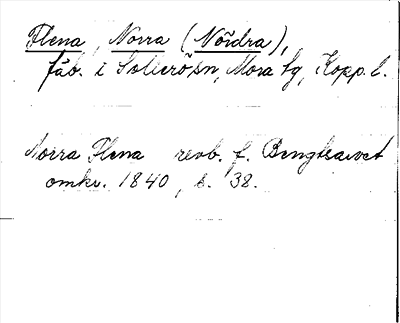 Flena, Norra (Nördra),
fäb. i Sollerö sn, Mora tg, Kopp. l.
Norra Flena revb. f. Bengtsarvet
omkr. 1840, s. 38.